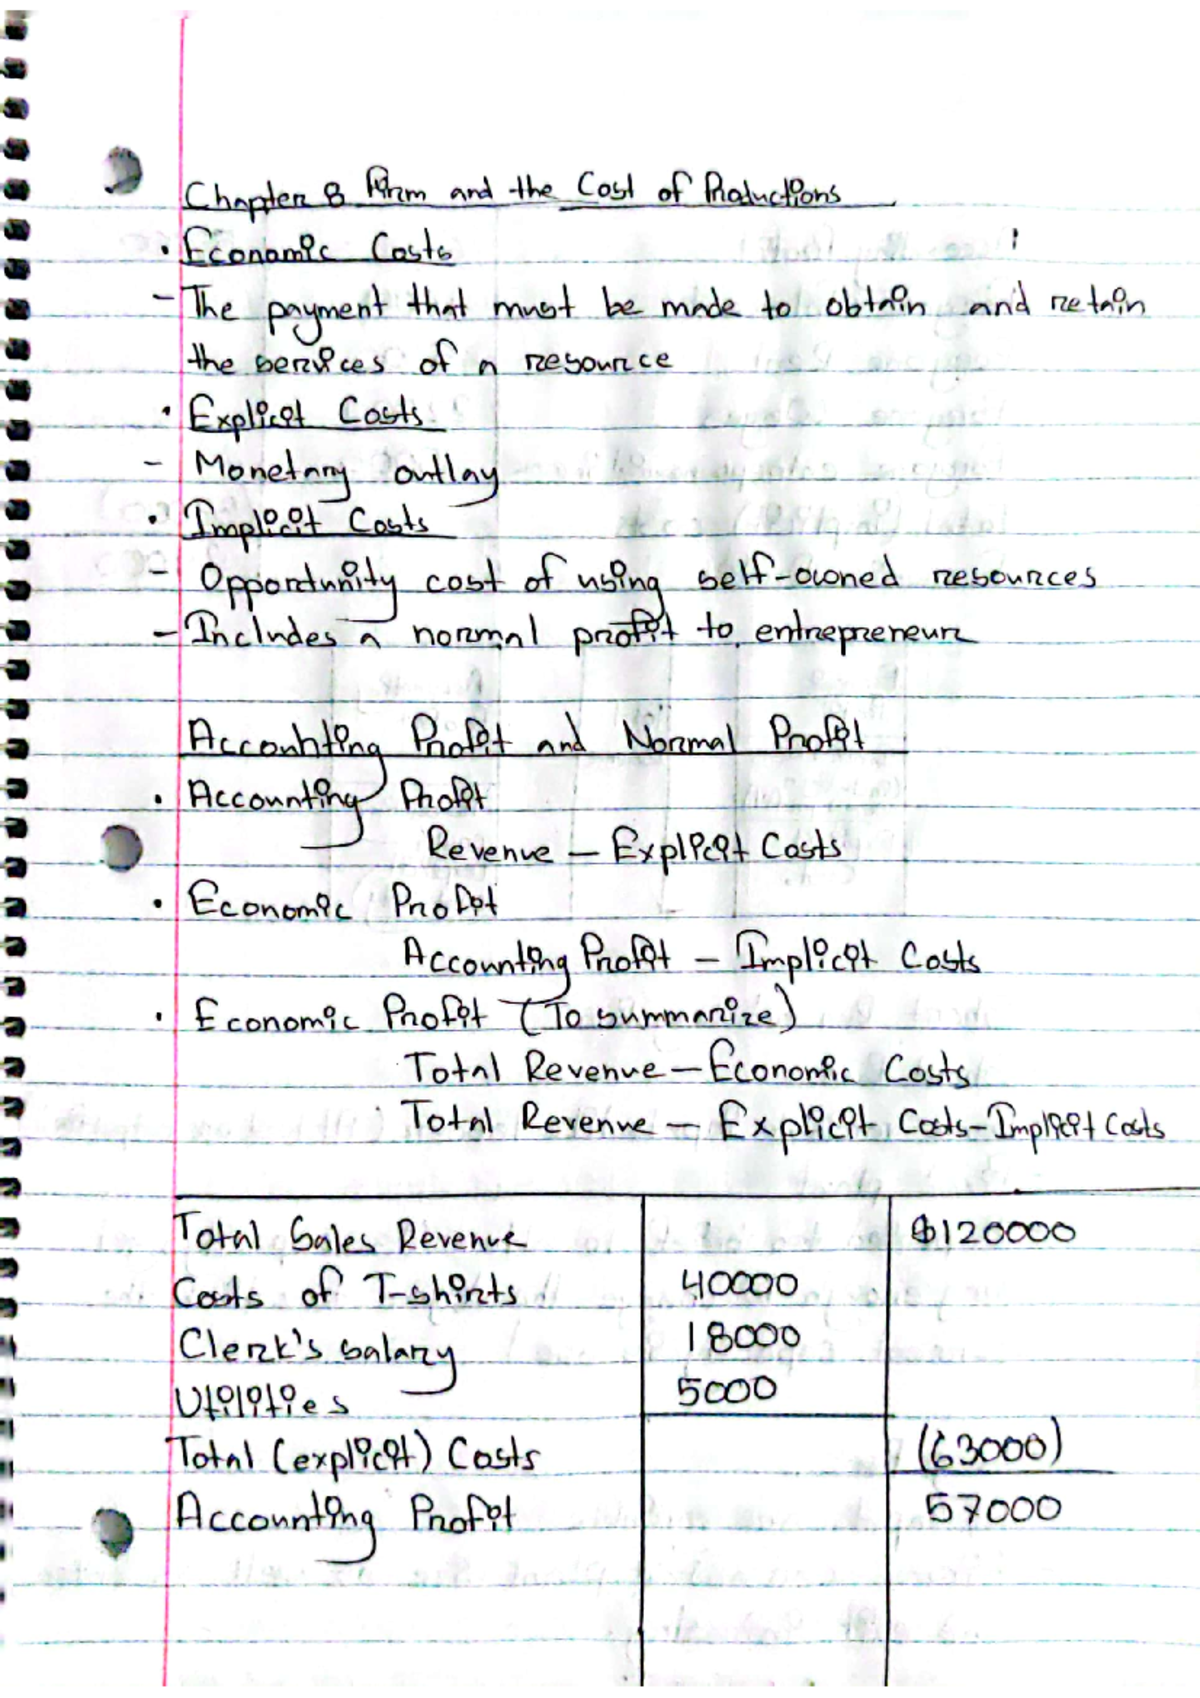 Chapter 8 Firm and the Cost of Productions
• Economic Costs
- The payment that must be made to obtain and retain
the services of a resource
• Explicit Costs
- Monetary outlay
• Implicit Costs
- Opportunity cost of using self-owned resources
- Includes a normal profit to entrepreneur
Accounting Profit and Normal Profit
• Accounting Profit
Revenue - Explicit Costs
• Economic Profit
Accounting Profit - Implicit Costs
• Economic Profit (To summarize)
Total Revenue - Economic Costs
Total Revenue - Explicit Costs - Implicit Costs
Total Sales Revenue $120000
Costs of T-shirts 40000
Clerk's salary 18000
Utilities 5000
Total (explicit) Costs (63000)
Accounting Profit 57000